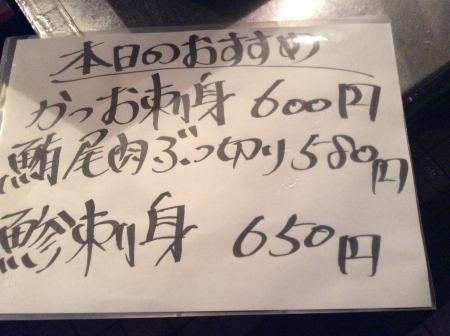 本日のおすすめ
かつお刺身 600円
鮪尾肉ぶつ切り580円
鯵刺身 650円